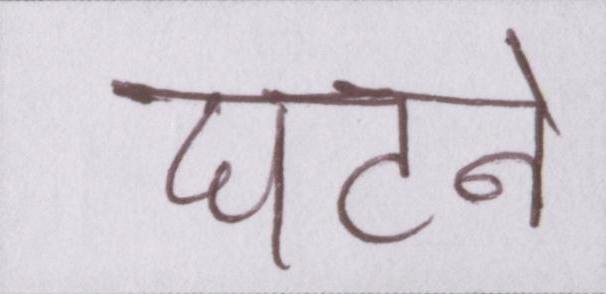 घटने